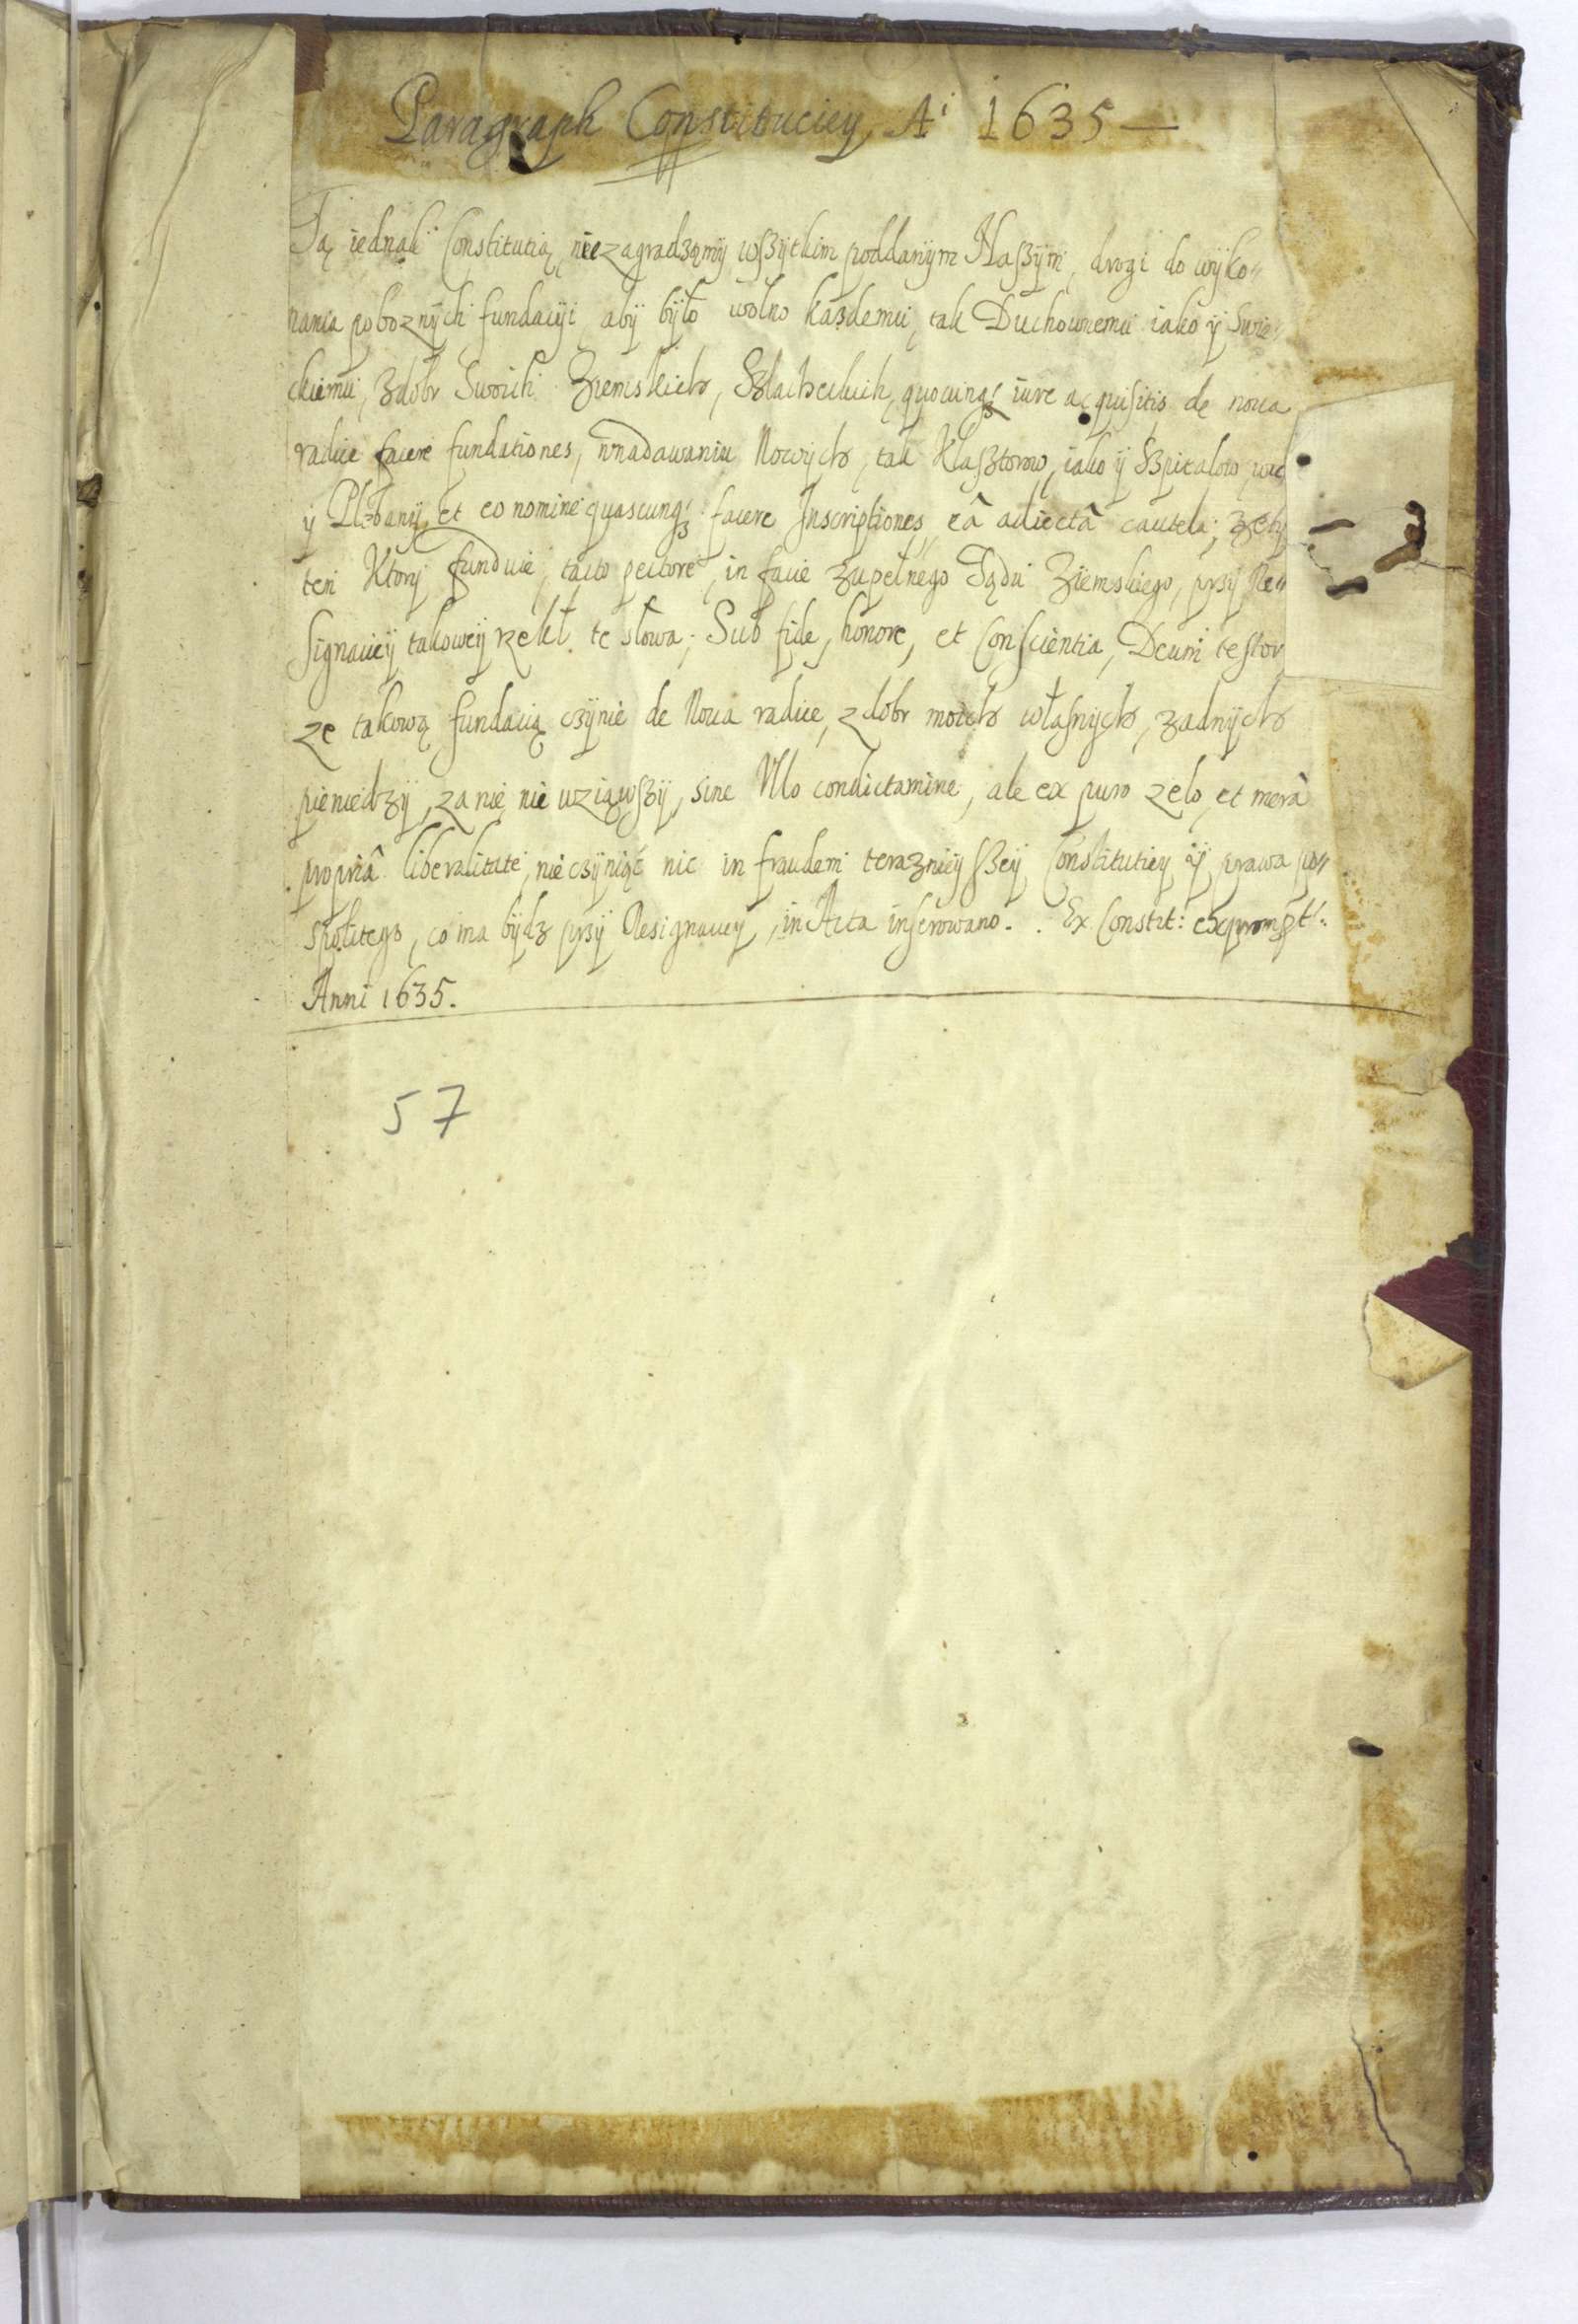 Paragraph Constituciey Aⁱ 1635 —
Tą iednak Constitutią, niezagradzamÿ wszÿtkim poddanÿm Naszÿm, drogi do wÿko„
nania poboznÿch fundacÿi, abÿ bÿło wolno kazdemu, tak Duchownemu iako ÿ Swie„
ckiemu, z dobr Swoich Ziemskich, Szlacheckich, quocunqȝ iure acquisitis de noua
radice facere fundationes, w nadawaniu Nowÿch, tak Klasztorow, iako ÿ Szpitalow
ÿ Plebanÿ, et eo nomine quascunqȝ facere Inscriptiones, eâ adiectâ cautela; zebÿ
ten Ktorÿ funduie, tacto pectore, in facie zupełnego Sądu Ziemskiego, przÿ Re„
signacieÿ takoweÿ rzekł te słowa; Sub fide, honore, et Conscientia, Deum testor
ze takową fundacią czÿnie de Noua radice, z dobr moich własnÿch, zadnÿch
pieniedzÿ, za nie nie uziąwszÿ, sine Ullo condictamine, ale ex puro zelo, et merâ
propriâ liberalitate, nieczÿniąc nic in fraudem teraznieÿszeÿ Constitutieÿ ÿ prawa po„
spolitego, co ma bÿdz przÿ Resignacieÿ, in Acta inserowano. Ex Constit: exprompt:
Anni 1635.
57